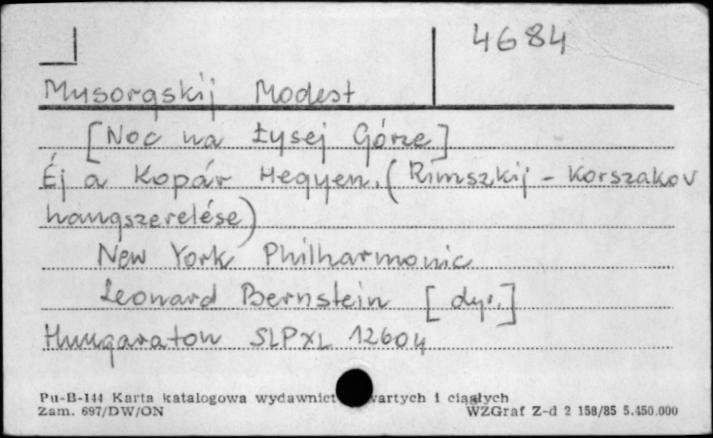 4684
Musorgskij Modest
[Noc na Łysej Górze]
Éj a Kopár Hegyen. (Rimszkij - Korszakov
hangszerelése)
New York Philharmonic
Leonard Bernstein [dyr.]
Hungaraton SLPXL 12604
Pu-B-144 Karta katalogowa wydawnict wartych i ciągłych
Zam. 697/DW/ON WZGraf Z-d 2 158/85 5.450.000